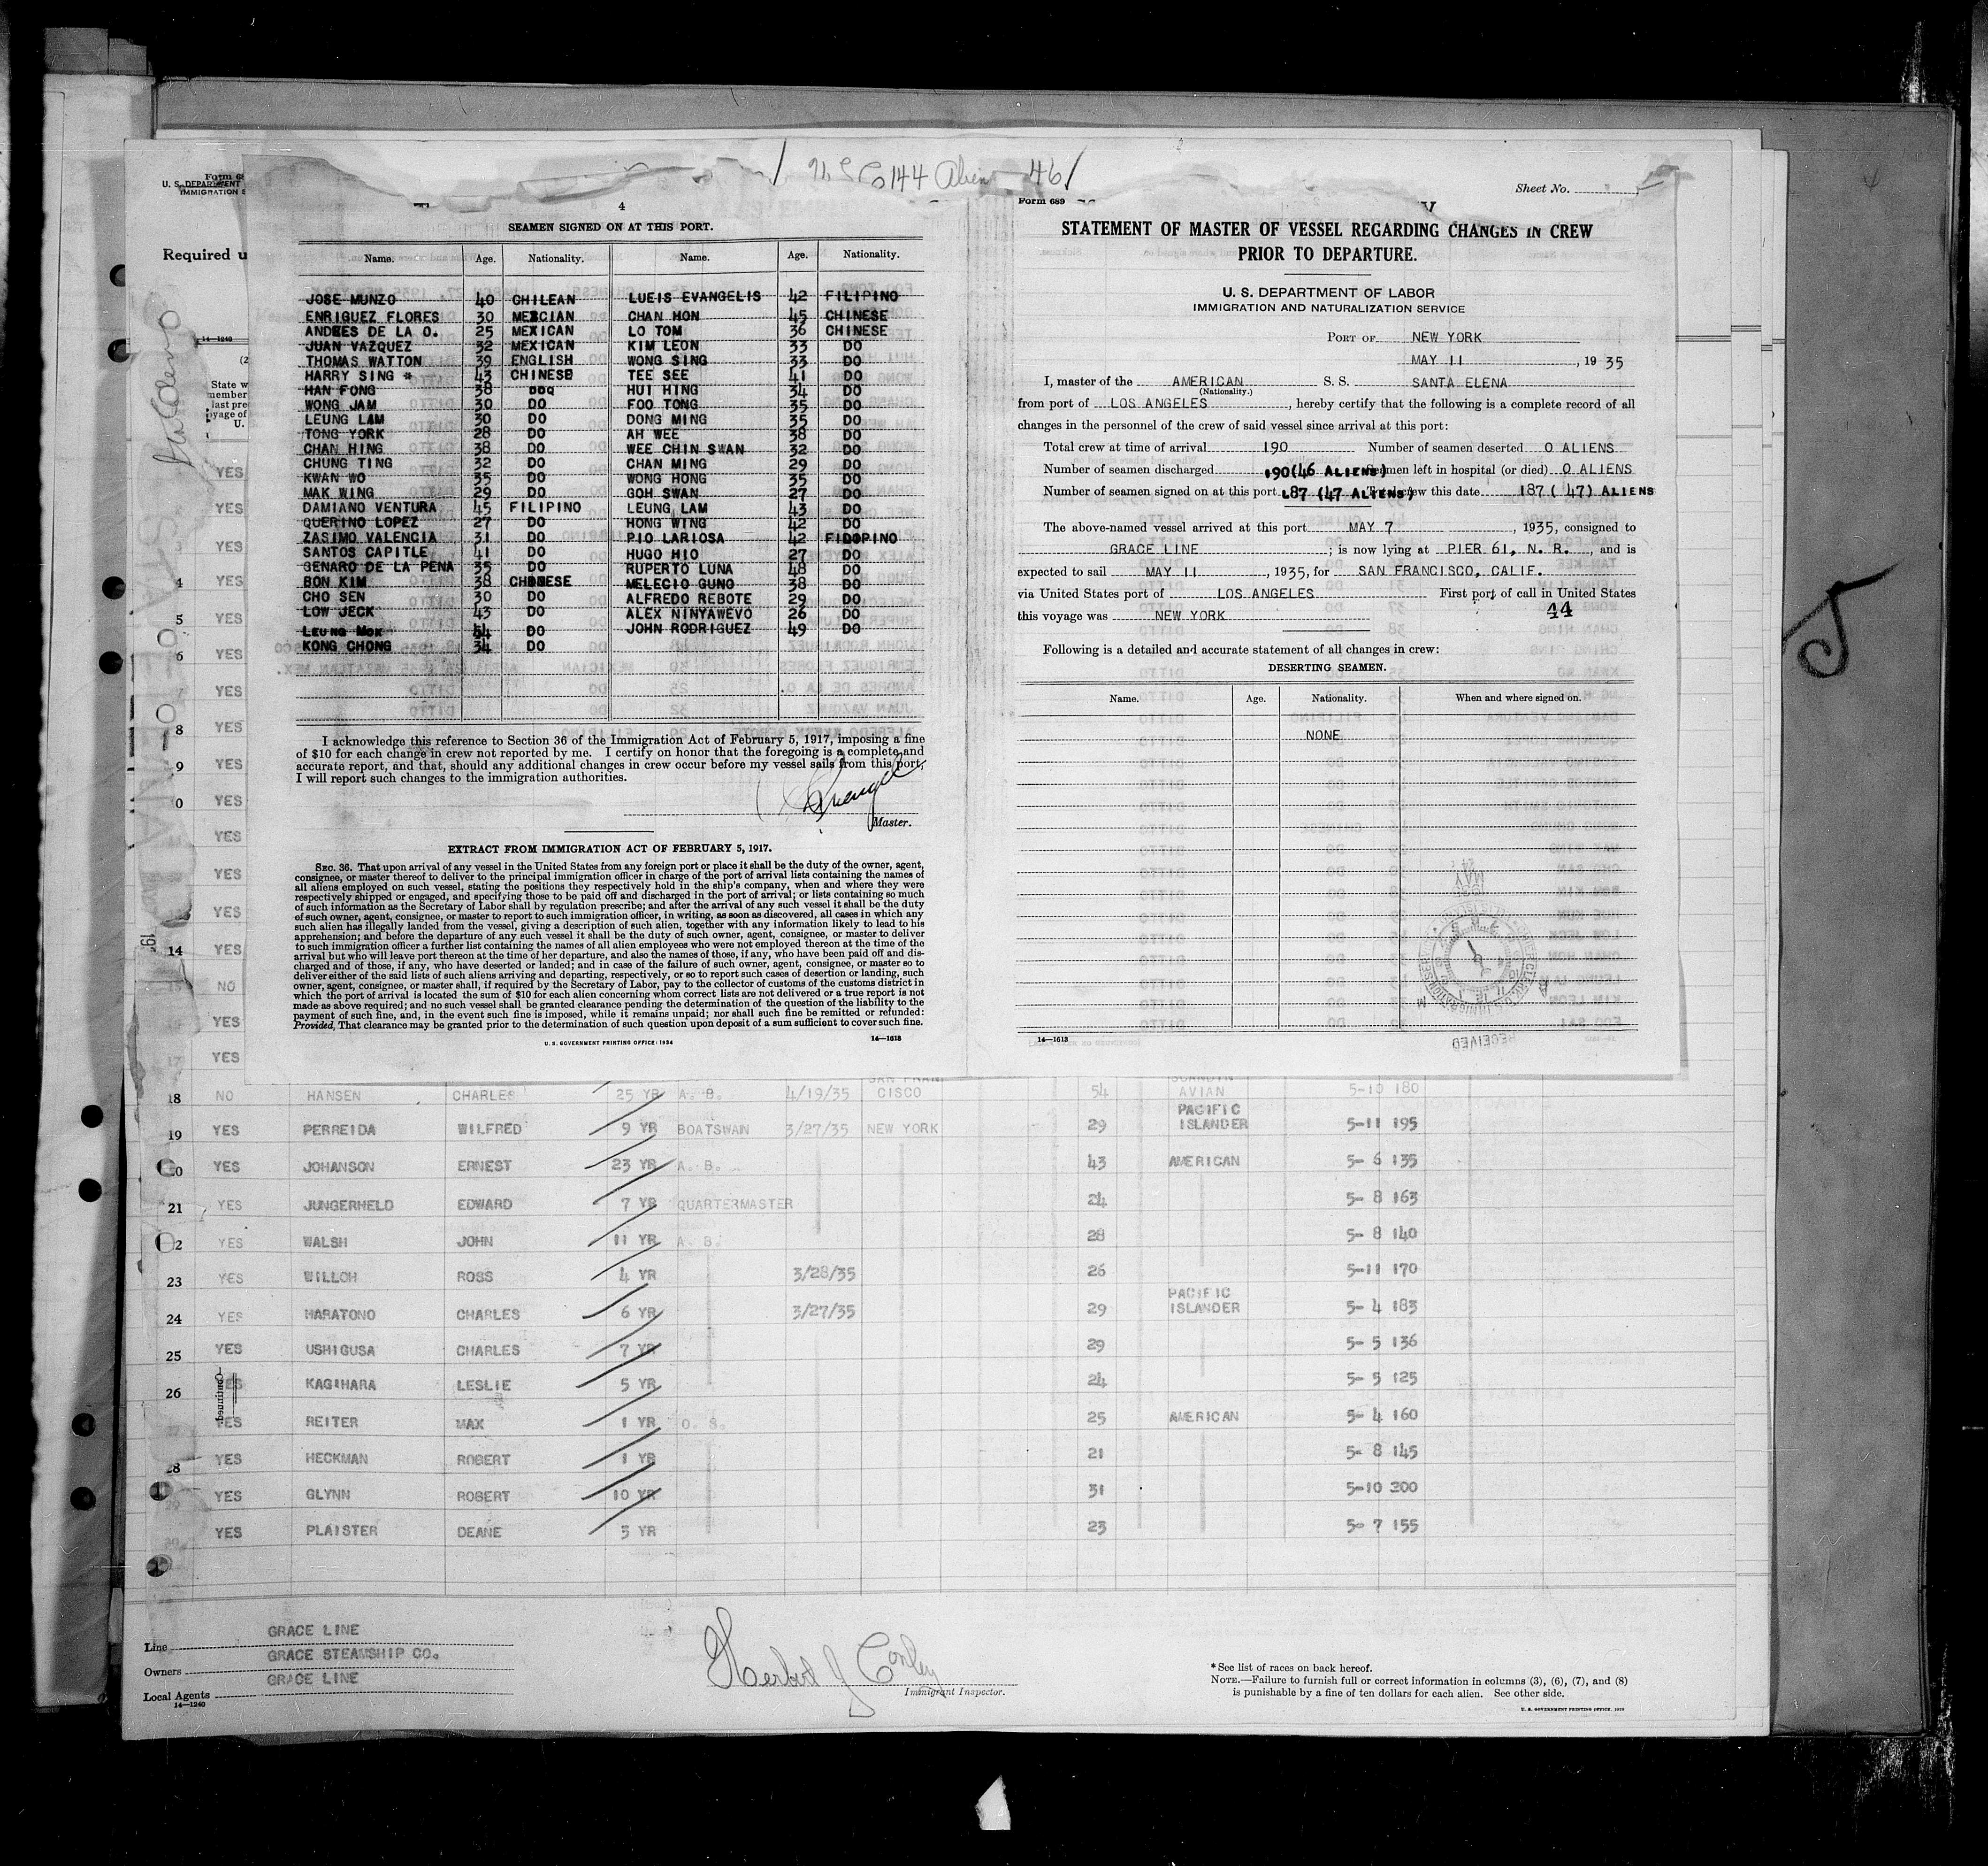 144 Aliens 46
U. S. DEPARTMENT
IMMIGRATION S
Required u
14—1240
State w
member
last pre
oyage of
U.
4
SEAMEN SIGNED ON AT THIS PORT.
Name. Age. Nationality. Name. Age. Nationality.
JOSE MUNZO 40 CHILEAN LUEIS EVANGELIS 42 FILIPINO
ENRIGUEZ FLORES 30 MEXCIAN CHAN HON 45 CHINESE
ANDRES DE LA O. 25 MEXICAN LO TOM 36 CHINESE
JUAN VAZQUEZ 32 MEXICAN KIM LEON 33 DO
THOMAS WATTON 39 ENGLISH WONG SING 33 DO
HARRY SING * 43 CHINESE TEE SEE 41 DO
HAN FONG 38 DO HUI HING 34 DO
WONG JAM 30 DO FOO TONG 35 DO
LEUNG LAM 30 DO DONG MING 35 DO
TONG YORK 28 DO AH WEE 38 DO
CHAN HING 38 DO WEE CHIN SWAN 32 DO
CHUNG TING 32 DO CHAN MING 29 DO
KWAN WO 35 DO WONG HONG 35 DO
MAK WING 29 DO GOH SWAN 27 DO
DAMIANO VENTURA 45 FILIPINO LEUNG LAM 43 DO
QUERINO LOPEZ 27 DO HONG WING 42 DO
ZASIMO VALENCIA 31 DO PIO LARIOSA 42 FILIPINO
SANTOS CAPITLE 41 DO HUGO HIO 27 DO
GENARO DE LA PENA 35 DO RUPERTO LUNA 48 DO
BON KIM 38 CHINESE MELECIO GUNO 38 DO
CHO SEN 30 DO ALFREDO REBOTE 29 DO
LOW JECK 43 DO ALEX NINYAWEVO 26 DO
LEUNG MOK 54 DO JOHN RODRIGUEZ 49 DO
KONG CHONG 34 DO
I acknowledge this reference to Section 36 of the Immigration Act of February 5, 1917, imposing a fine
of $10 for each change in crew not reported by me. I certify on honor that the foregoing is a complete and
accurate report, and that, should any additional changes in crew occur before my vessel sails from this port,
I will report such changes to the immigration authorities.
Master.
EXTRACT FROM IMMIGRATION ACT OF FEBRUARY 5, 1917.
SEC. 36. That upon arrival of any vessel in the United States from any foreign port or place it shall be the duty of the owner, agent,
consignee, or master thereof to deliver to the principal immigration officer in charge of the port of arrival lists containing the names of
all aliens employed on such vessel, stating the positions they respectively hold in the ship's company, when and where they were
respectively shipped or engaged, and specifying those to be paid off and discharged in the port of arrival; or lists containing so much
of such information as the Secretary of Labor shall by regulation prescribe; and after the arrival of any such vessel it shall be the duty
of such owner, agent, consignee, or master to report to such immigration officer, in writing, as soon as discovered, all cases in which any
such alien has illegally landed from the vessel, giving a description of such alien, together with any information likely to lead to his
apprehension; and before the departure of any such vessel it shall be the duty of such owner, agent, consignee, or master to deliver
to such immigration officer a further list containing the names of all alien employees who were not employed thereon at the time of the
arrival but who will leave port thereon at the time of her departure, and also the names of those, if any, who have been paid off and dis-
charged and of those, if any, who have deserted or landed; and in case of the failure of such owner, agent, consignee, or master so to
deliver either of the said lists of such aliens arriving and departing, respectively, or so to report such cases of desertion or landing, such
owner, agent, consignee, or master shall, if required by the Secretary of Labor, pay to the collector of customs of the customs district in
which the port of arrival is located the sum of $10 for each alien concerning whom correct lists are not delivered or a true report is not
made as above required; and no such vessel shall be granted clearance pending the determination of the question of the liability to the
payment of such fine, and, in the event such fine is imposed, while it remains unpaid; nor shall such fine be remitted or refunded:
Provided, That clearance may be granted prior to the determination of such question upon deposit of a sum sufficient to cover such fine.
U. S. GOVERNMENT PRINTING OFFICE: 1934 14—1613
Sheet No.
Form 689
STATEMENT OF MASTER OF VESSEL REGARDING CHANGES IN CREW
PRIOR TO DEPARTURE.
U. S. DEPARTMENT OF LABOR
IMMIGRATION AND NATURALIZATION SERVICE
PORT OF NEW YORK
MAY 11, 1935
I, master of the AMERICAN S. S. SANTA ELENA
(Nationality.)
from port of LOS ANGELES, hereby certify that the following is a complete record of all
changes in the personnel of the crew of said vessel since arrival at this port:
Total crew at time of arrival 190 Number of seamen deserted 0 ALIENS
Number of seamen discharged 190(46 ALIENS) Seamen left in hospital (or died) 0 ALIENS
Number of seamen signed on at this port 187 (47 ALIENS) crew this date 187 ( 47) ALIENS
The above-named vessel arrived at this port MAY 7, 1935, consigned to
GRACE LINE; is now lying at PIER 61, N. R., and is
expected to sail MAY 11, 1935, for SAN FRANCISCO, CALIF.
via United States port of LOS ANGELES First port of call in United States
this voyage was NEW YORK 44
Following is a detailed and accurate statement of all changes in crew:
DESERTING SEAMEN.
Name. Age. Nationality. When and where signed on.
NONE
14—1613
RECEIVED
18 NO HANSEN CHARLES 25 YR A. B. 4/19/35 SAN FRANCISCO 54 SCANDINAVIAN 5-10 180
19 YES PERREIDA WILFRED 9 YR BOATSWAIN 3/27/35 NEW YORK 29 PACIFIC ISLANDER 5-11 195
20 YES JOHANSON ERNEST 23 YR A. B. 43 AMERICAN 5- 6 135
21 YES JUNGERHELD EDWARD 7 YR QUARTERMASTER 24 5- 8 163
22 YES WALSH JOHN 11 YR A. B. 28 5- 8 140
23 YES WILLOH ROSS 4 YR 3/28/35 26 5-11 170
24 YES HARATONO CHARLES 6 YR 3/27/35 29 PACIFIC ISLANDER 5- 4 183
25 YES USHIGUSA CHARLES 7 YR 29 5- 5 136
26 YES KAGIHARA LESLIE 5 YR 24 5- 5 125
YES REITER MAX 1 YR O. S. 25 AMERICAN 5- 4 160
28 YES HECKMAN ROBERT 1 YR 21 5- 8 145
YES GLYNN ROBERT 10 YR 31 5-10 200
YES PLAISTER DEANE 3 YR 23 5- 7 155
Line GRACE LINE
Owners GRACE STEAMSHIP CO.
Local Agents GRACE LINE
14—1240
Herbert J Conley
Immigrant Inspector.
*See list of races on back hereof.
NOTE.—Failure to furnish full or correct information in columns (3), (6), (7), and (8)
is punishable by a fine of ten dollars for each alien. See other side.